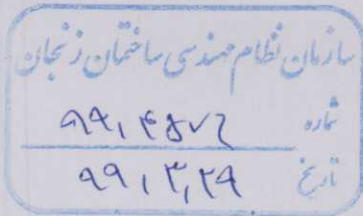 سازمان نظام مهندسی ساختمان زنجان
شماره ۹۹،۴۵۷۶
تاریخ ۹۹،۳،۲۹